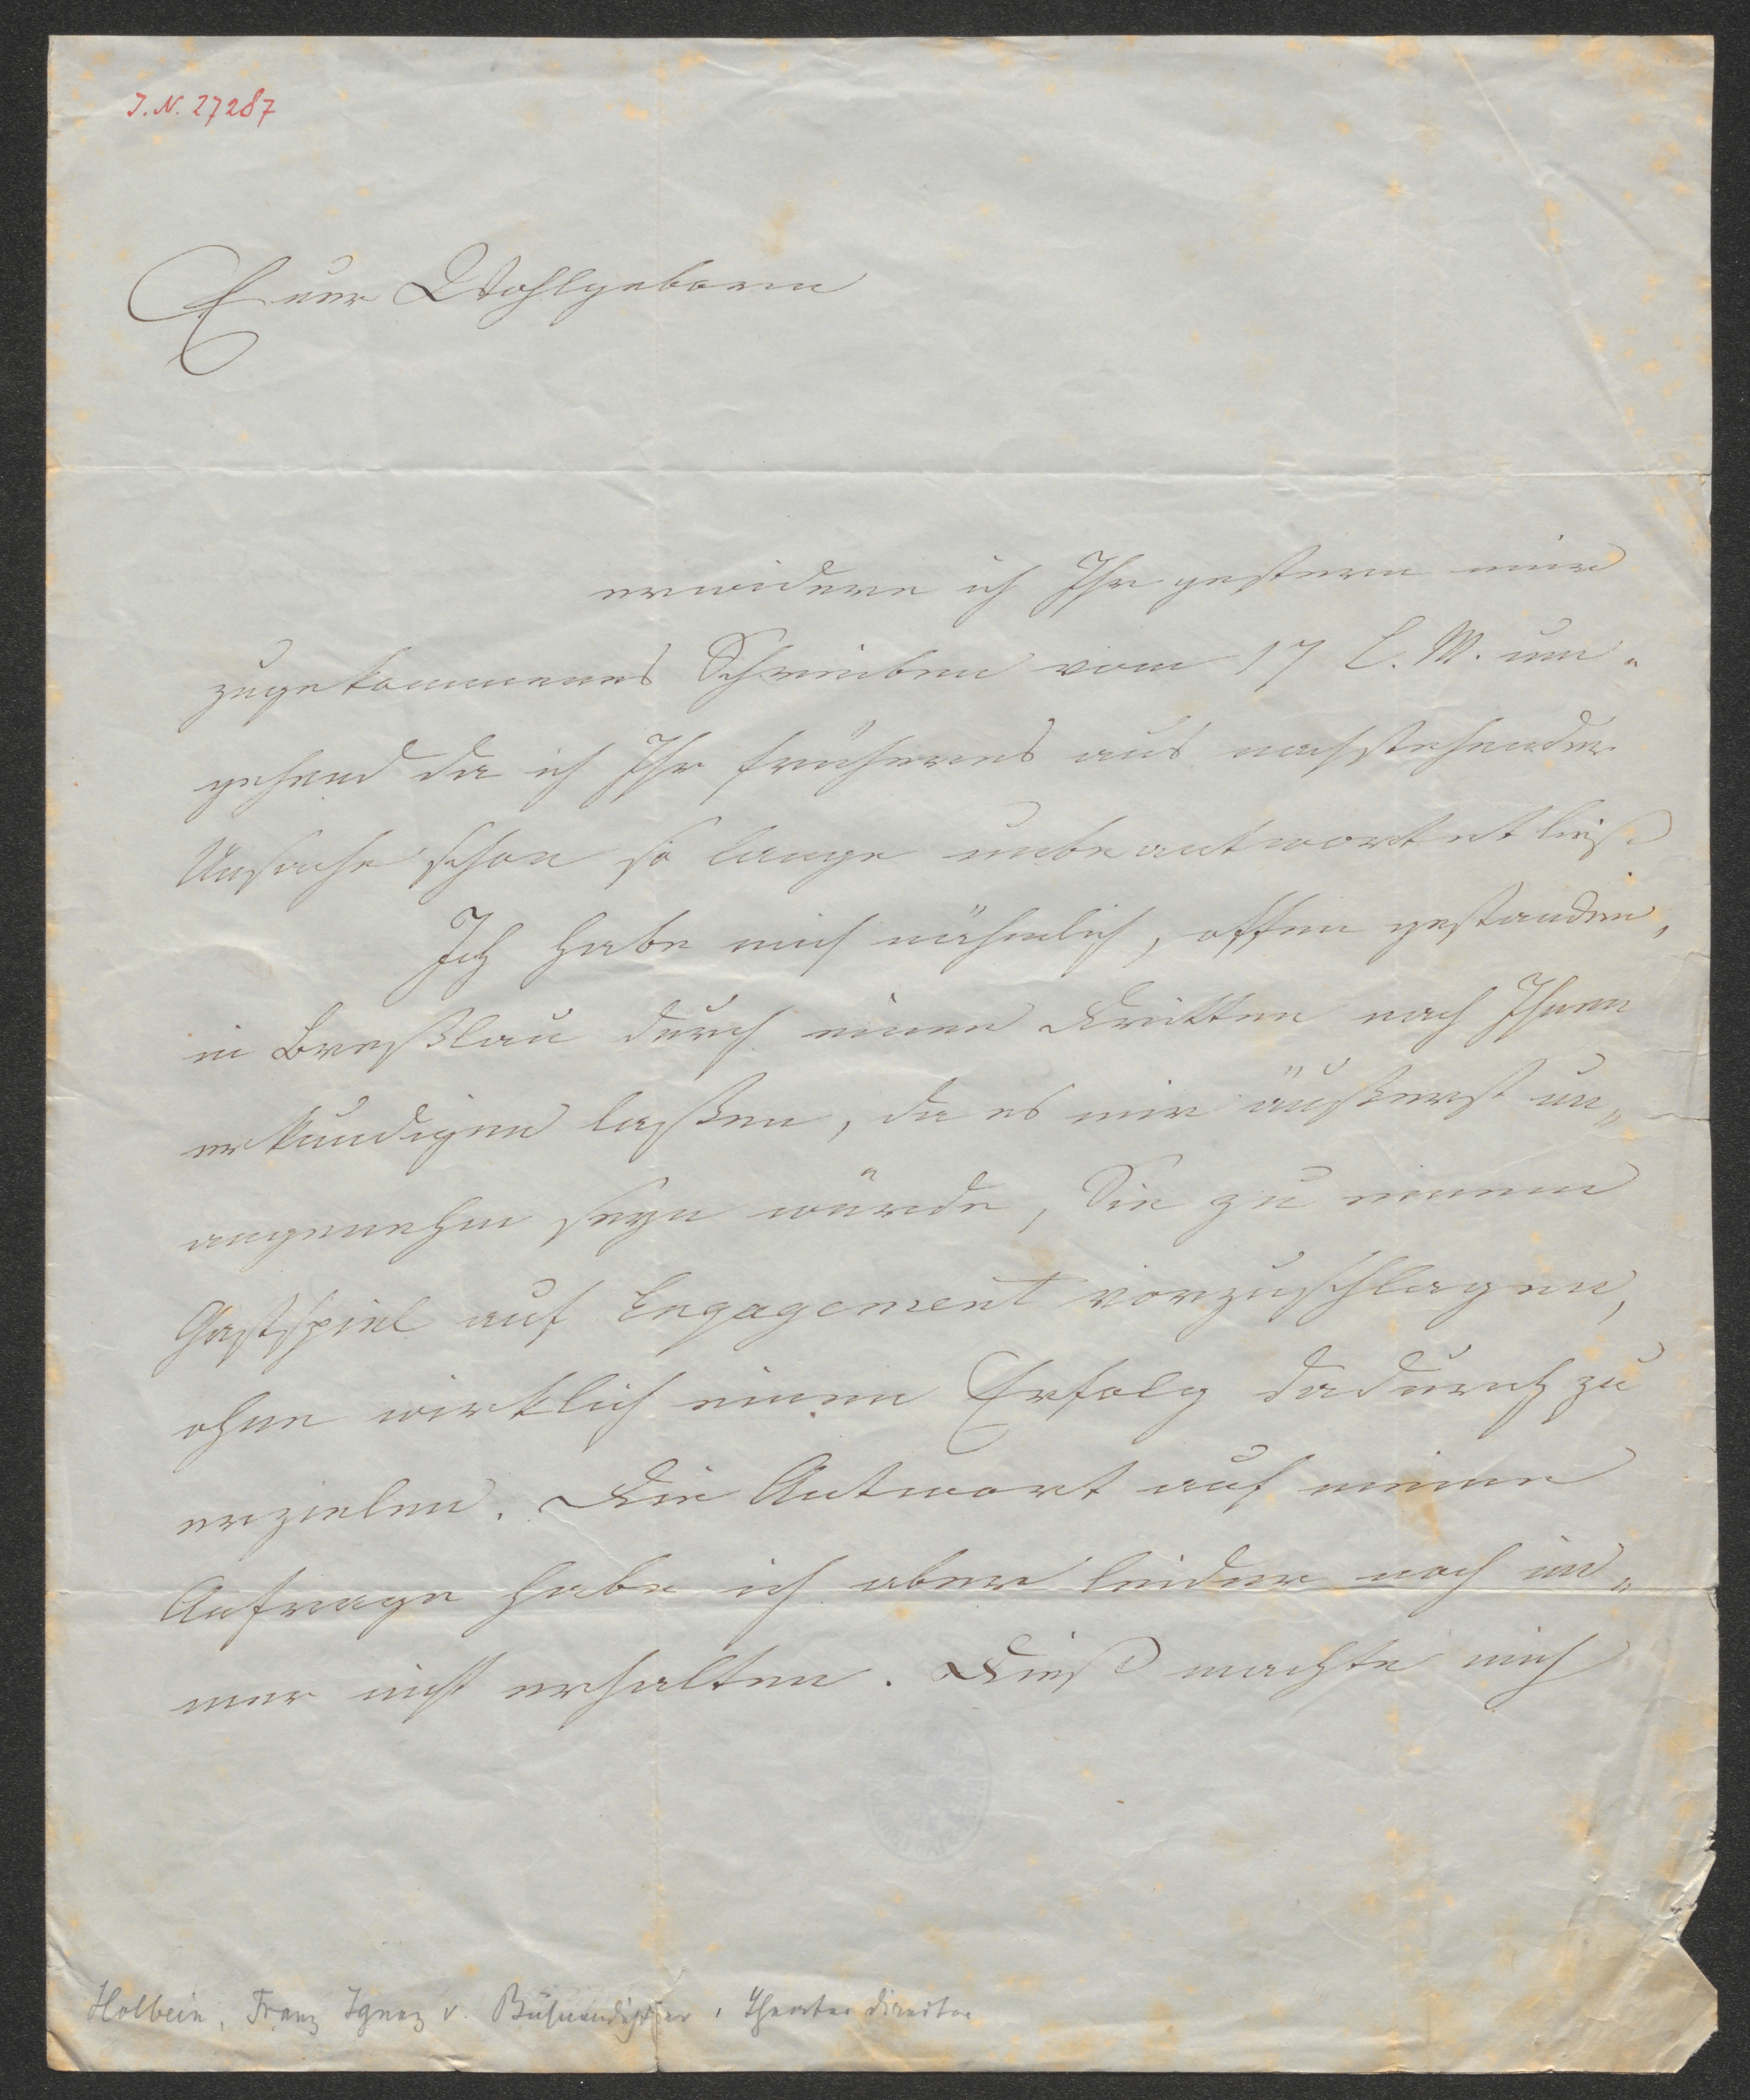 J. N. 27287
Euer Wohlgeboren
erwidere ich Ihr gestern mir
zugekommenes Schreiben vom 17 l. M. um„
gehend da ich Ihr früheres aus nachstehender
Ursache schon so lange unbeantwortet ließ
Ich habe mich nähmlich, offen gestanden,
in Breßlau durch einen Dritten nach Ihnen
erkundigen laßen, da es mir äußerst un„
angenehm seyn würde, Sie zu einem
Gastspiel auf Engagement vorzuschlagen,
ohne wirklich einen Erfolg dadurch zu
erzielen. Die Antwort auf meine
Anfrage habe ich aber leider noch im„
mer nicht erhalten. Dieß machte mich
Holbein, Franz Ignaz v. Bühnendichter, Theaterdirector